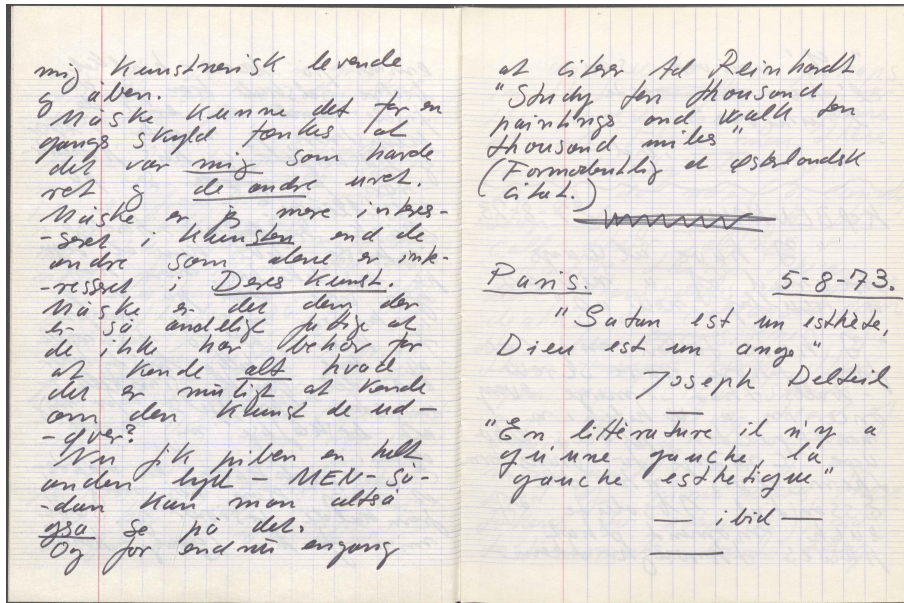 mig kunstnerisk levende
og åben.
Måske kunne det for en
gangs skyld tænkes at
det var mig som havde
ret og de andre uret.
Måske er jeg mere interes-
-seret i kunsten end de
andre som alene er inte-
-resseret i Deres kunst.
Måske er det dem der
er så åndelige fattige at
de ikke har behov for
at kende alt hvad
det er muligt at kende
om den kunst de ud-
-øver?
Nu fik piben en helt
anden lyd – MEN – så-
-dan kan man altså
også se på det.
Og for endnu engang
at citere Ad Reinhardt
"Study ten thousand
paintings and walk ten
thousand miles"
(Formodentlig et østerlandsk
citat.)
Paris. 5-8-73.
"Satan est un esthète,
Dieu est un ange"
Joseph Delteil
"En littérature il n'y a
qu'une gauche, la
gauche esthétique"
— ibid —